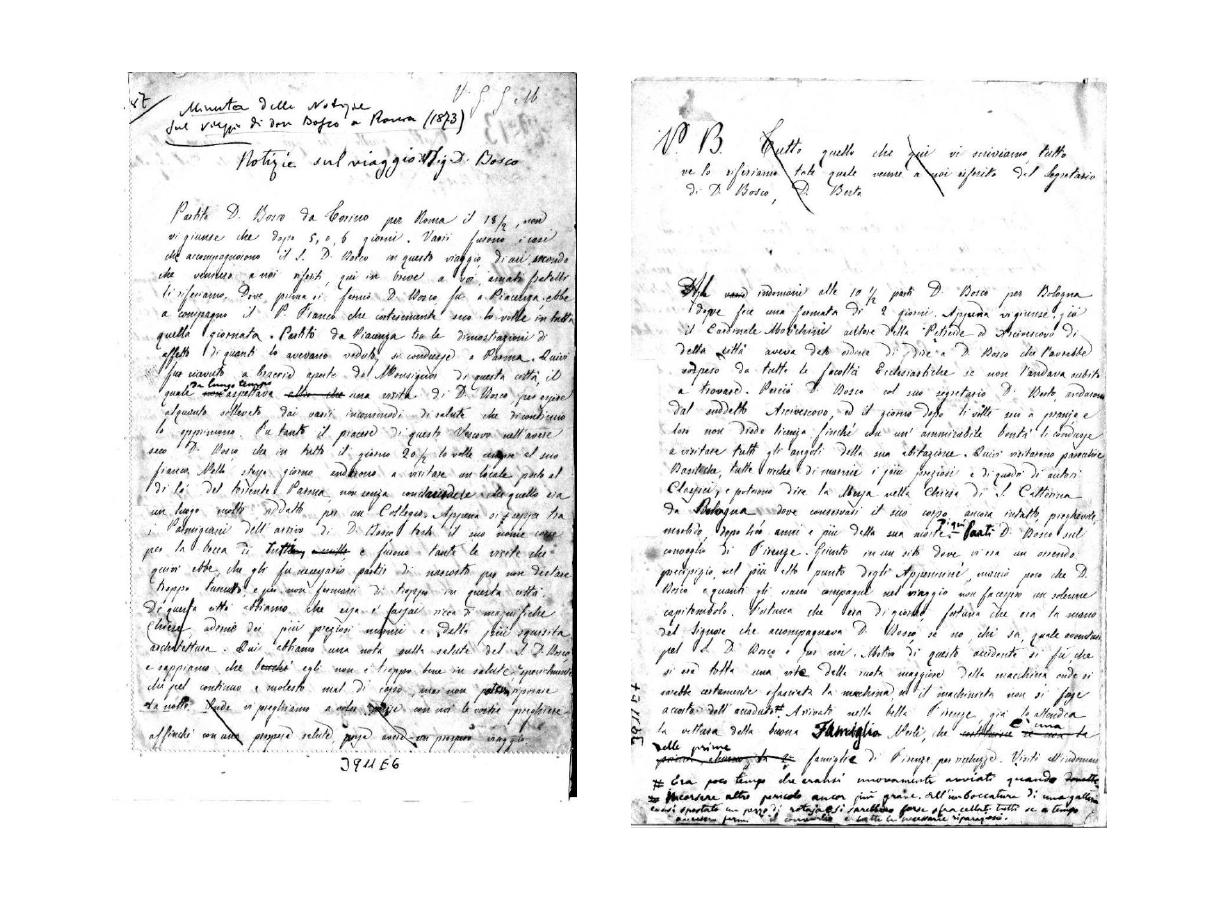 Minuta delle Notizie
sul viaggio di don Bosco a Roma (1873)
Notizie sul viaggio Sig. D. Bosco
Partito D. Bosco da Torino per Roma il 18/2, non
vi giunse che dopo 5, o, 6 giorni. Varii furono i casi
che accompagnarono il S. D. Bosco in questo viaggio, di cui secondo
che vennero a noi riferiti, qui in breve a voi, amati fratelli
li riferiamo. Dove prima si fermò D. Bosco, fu a Piacenza. ebbe
a compagno il P. Franco che cortesemente seco lo volle in tutta
quella giornata. Partito da Piacenza tra le dimostrazioni di
affetto di quanti lo avevano veduto, si condusse a Parma. Quivi
fu ricevuto a braccia aperte da Monsignor di questa città, il
da lungo tempo
quale aspettava una visita di D. Bosco, per essere
alquanto sollevato dai varii incomodi di salute che di continuo
lo opprimono. Fu tanto il piacere di questo Vescovo nell'avere
seco D. Bosco che in tutto il giorno 20/2 lo volle sempre al suo
fianco. Nello stesso giorno andarono a visitare un locale posto al
di là del torrente Parma, non senza conchiudere che quello era
un luogo molto adatto per un Collegio. Appena si seppe tra
i Parmigiani dell'arrivo di D. Bosco tosto il suo nome corse
per la bocca di tutti e furono tante le visite che
quivi ebbe che gli fu necessario partir di nascosto per non destare
troppo tumulto e per non fermarsi di troppo in questa città.
Di questa città abbiamo, che essa è assai ricca di magnifiche
Chiese, adorne dei più preziosi marmi e della più squisita
architettura. Qui abbiamo una nota sulla salute del S. D. Bosco
e sappiamo che egli non è troppo bene in salute,
che pel continuo e molesto mal di capo, mai non potesse riposare
la notte. Onde vi preghiamo a voler unire con noi le vostre preghiere
affinchè con una prospera salute, possa avere un prospero viaggio.
3911E6
N. B. Tutto quello che qui vi scriviamo, tutto
ve lo riferiamo tale quale venne a noi riferito dal Segretario
di D. Bosco, D. Berto
indomani alle 10 1/2 partì D. Bosco per Bologna
dove fece una fermata di 2 giorni. Appena vi giunse, già
il Cardinale Morichini autore della Petizione ed Arcivescovo di
della città aveva dato ordine di dire a D. Bosco che l'avrebbe
sospeso da tutte le facoltà Ecclesiastiche se non l'andava subito
a trovare. Perciò D. Bosco col suo segretario D. Berto, andarono
dal suddetto Arcivescovo, ed il giorno dopo li volle seco a pranzo e
loro non diede licenza finchè con un'ammirabile bontà li condusse
a visitare tutti gli angoli della sua abitazione. Quivi visitarono parecchie
Basiliche, tutte ricche di marmi i più preziosi e di quadri di autori
Classici, e poterono dire la Messa nella Chiesa di S. Catterina
da Bologna dove conservasi il suo corpo ancora intatto, pieghevole,
morbido, dopo 400 anni e più della sua morte. Di qui Partì D. Bosco sul
convoglio di Firenze. Giunto in un sito dove vi era un orrendo
precipizio, nel più alto punto degli Appennini, mancò poco che D.
Bosco e quanti gli erano compagni nel viaggio non facessero un solenne
capitombolo. Fortuna che era di giorno, fortuna che era la mano
del Signore che accompagnava D. Bosco, se no chi sa, quale
pel S. D. Bosco e per noi. Motivo di questo accidente si fu che
si era rotta una vite della ruota maggiore della macchina onde si
sarebbe certamente sfasciata la macchina se il machinista non si fosse
accorto dell'accaduto#. Arrivati nella bella Firenze, già lo attendea
la vettura della buona Famiglia Nerli, che è una
delle prime famiglie di Firenze per ricchezze. Venti
# Era poco tempo che eransi nuovamente avviati quando
incorsero altro pericolo ancor più grave. All'imboccatura di una galleria
erasi spostato un pezzo di rotaja e si sarebbero forse sfracellati tutti se a tempo
avessero fermo il convoglio e fatte le necessarie riparazioni.
3911E7